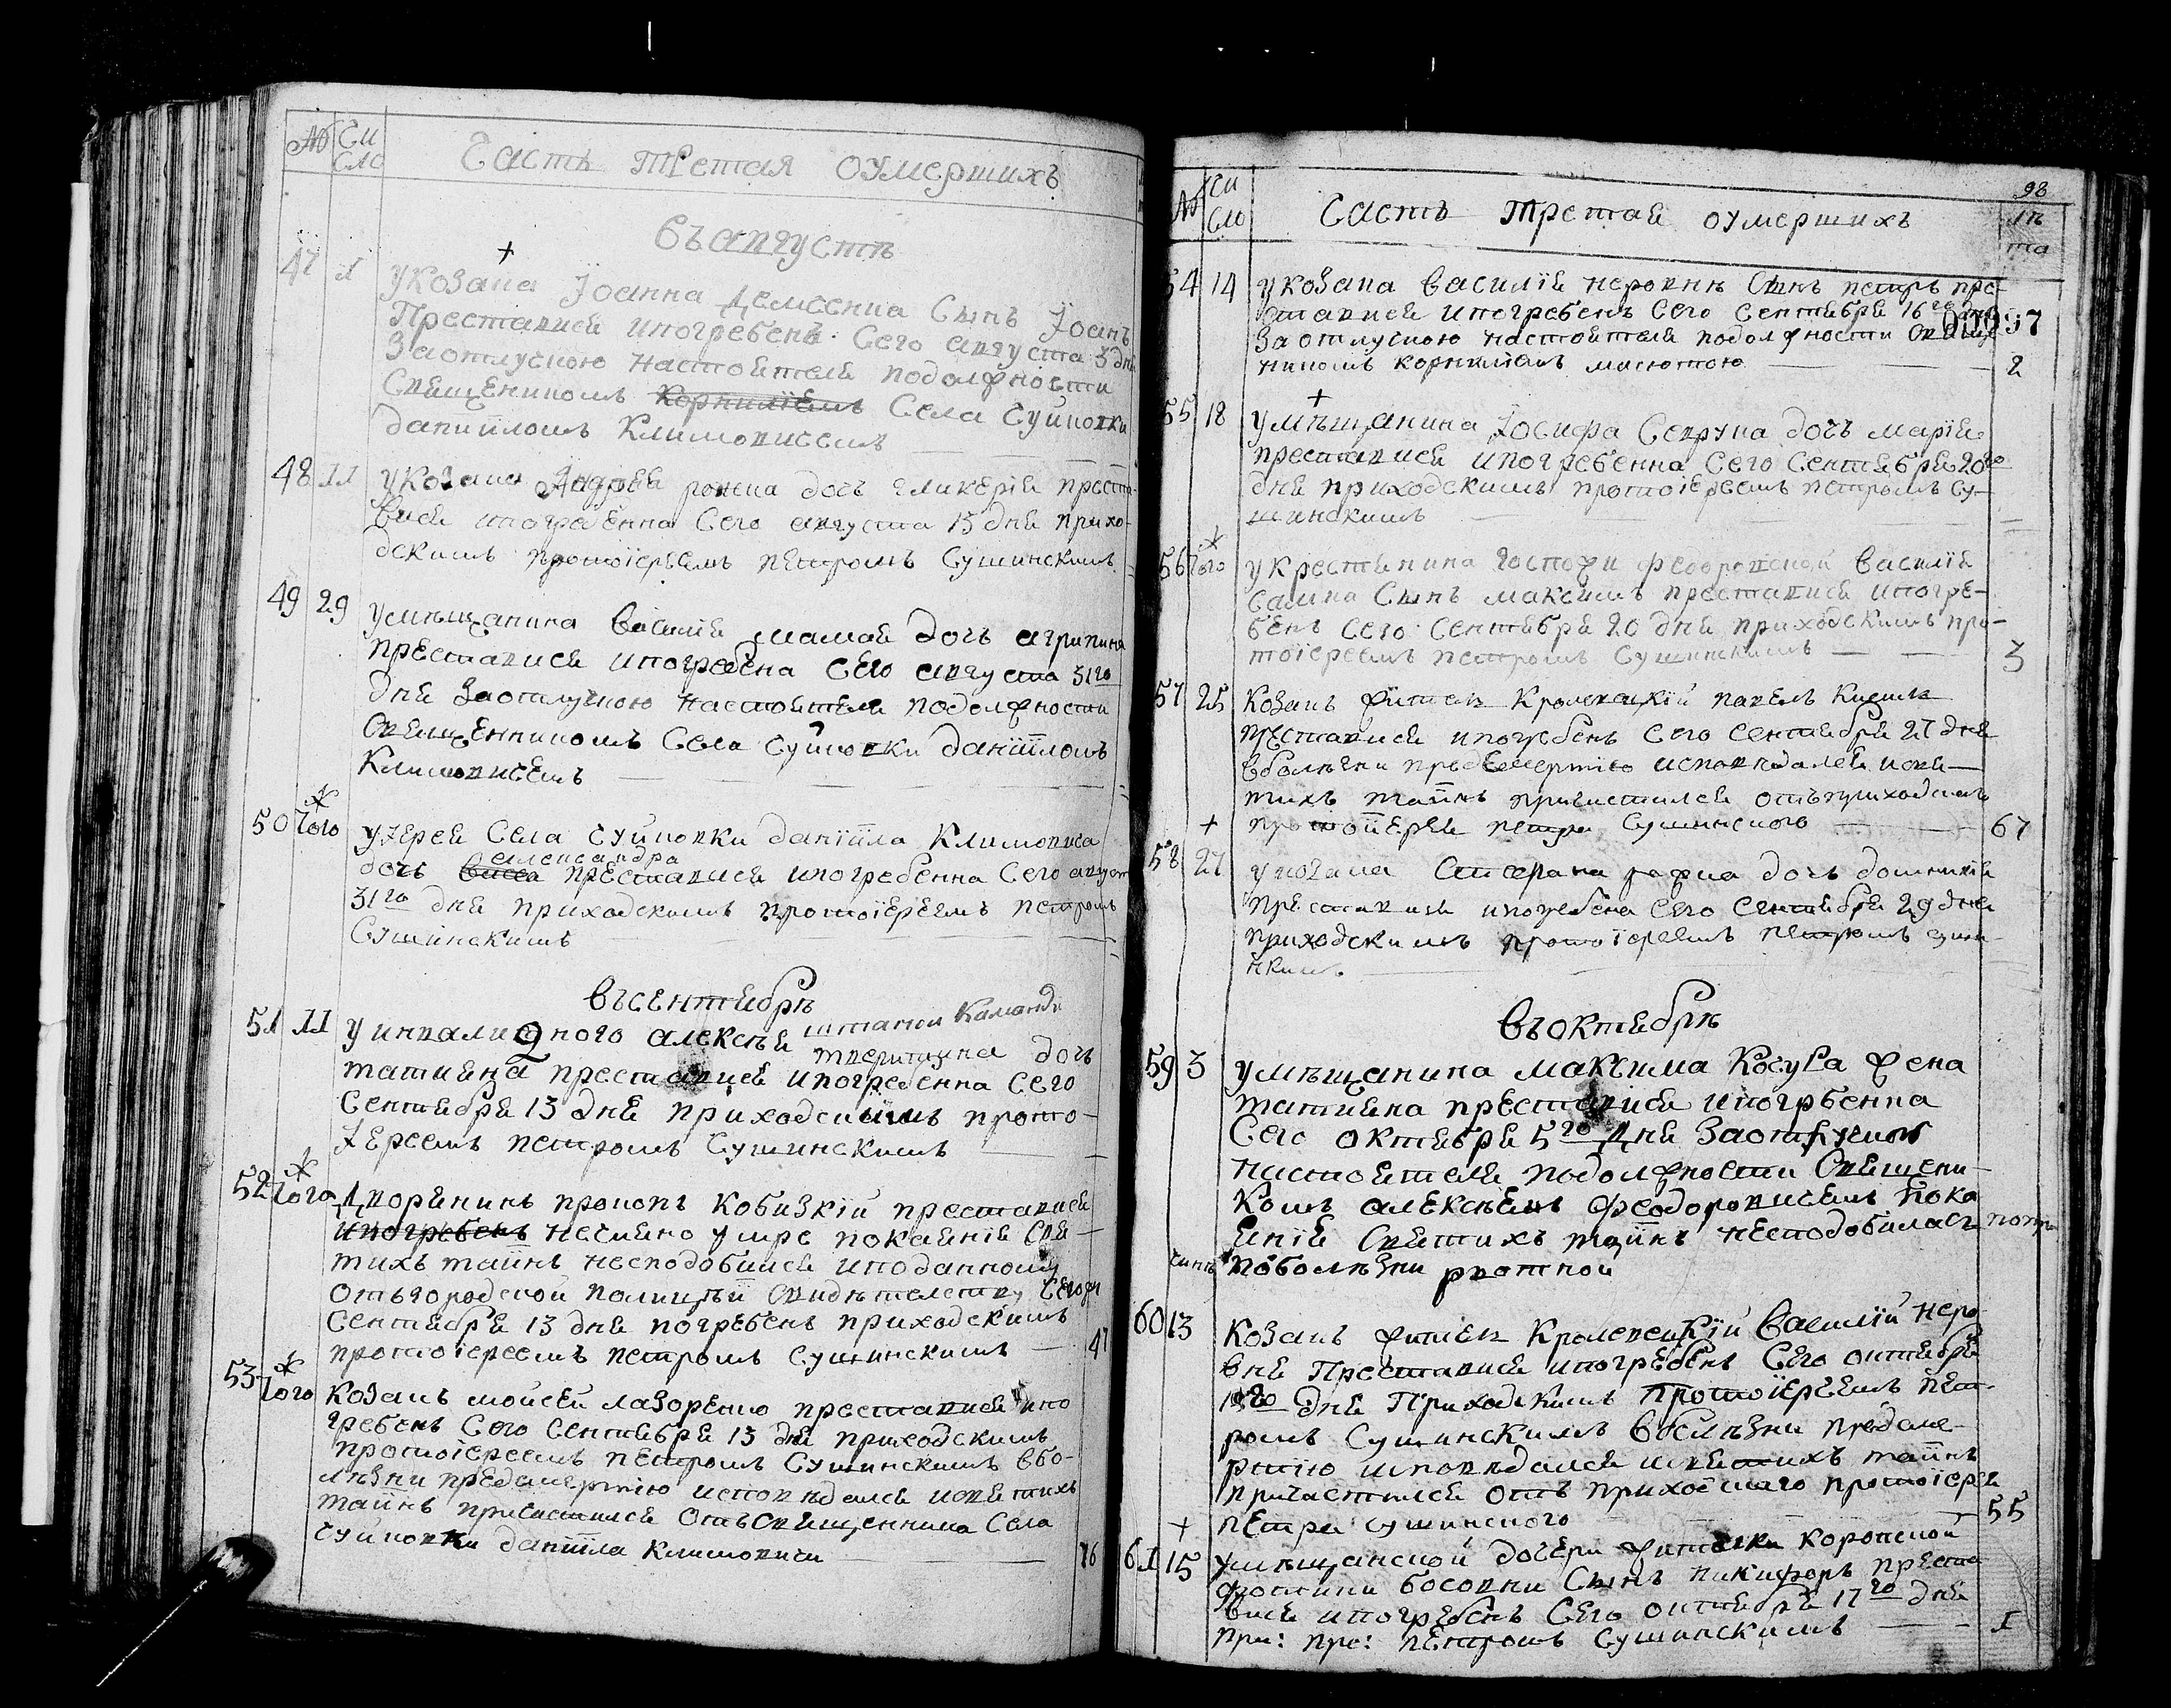 № Чи
сло
Часть третая оумершихъ
Въ августѣ
47 1 У козака Іоанна Демченка Сынъ Іоанъ
Преставися и погребенъ Сего августа 3 дня
За отлучкою настоятеля по должности
Священикомъ Корнилїемъ Села Чуйковки
Данїиломъ Климовичемъ
48 11 У козака Андрея дочь гликерїя преста-
вися и погребенна Сего августа 13 дня прихо-
дскимъ протоїереемъ петромъ Сушинскимъ
49 29 У мѣщанина Василїя мамая дочь агрипина
преставися и погребена Сего августа 31го
дня За отлучкою настоятеля по должности
Священникомъ Села Чуйковки данїиломъ
Климовичемъ
50 того У Іерея Села Чуйковки данїила Климовича
александра
дочь преставися и погребенна Сего август
31го дня приходскимъ протоїереемъ петромъ
Сушинскимъ
Въ сентябрѣ
штатной Команди
51 11 У инвалидного алексѣя дочь
татияна преставися и погребенна Сего
Сентября 13 дня приходскимъ прото-
Іереемъ петромъ Сушинскимъ
52 того Дворянинъ прокопъ Кобизкїй преставися
и погребенъ нечаяно умре покаянїя Свя-
тихъ таинъ несподобися и по данному
отъ городской полицїи свидѣтелству Сегожъ
Сентября 13 дня погребенъ приходскимъ
протоїереемъ петромъ Сушинскимъ 47
53 того Козакъ мойсей лазоренко преставися и по
гребенъ Сего Сентября 13 дня приходскимъ
протоїереемъ петромъ Сушинскимъ в бо-
лѣзни предсмертїю исповѣдался и святихъ
таинъ причастился отъ Священника Села
Чуйковки данїила климовича 76
98
№ Чи
сло
Часть третая оумершихъ лѣ
та
54 14 У козака Василїя неровнѣ Сынъ петръ пре-
ставися и погребенъ Сего Сентября 16го дня
За отлучкою настоятеля по должности Свяще
никомъ корнилїемъ 2
55 18 У мѣщанина Іосифа дочь марїя
преставися и погребенна Сего Сентября 20го
дня приходскимъ протоїереемъ петромъ Су-
шинскимъ
56 того У крестянина госпожи Василїя
Сынъ максимъ преставися и погре-
бенъ Сего Сентября 20 дня приходскимъ про-
тоїереемъ петромъ Сушинскимъ 3
57 25 Козакъ житель Кролевецкїй павелъ
преставися и погребенъ Сего Сентября 27 дня
в болѣзни предсмертїю исповѣдался и свя-
тихъ таинъ причастился отъ приходскаго
протоїерея петра Сушинского 67
58 27 У козака дочь домникїя
преставися и погребена Сего Сентября 29 дня
приходскимъ протоїереемъ петромъ Суши-
нкимъ
Въ октябрѣ
59 3 У мѣщанина максима Косуѣа жена
татияна преставися и погрбенна
Сего октября 5го дня За отлучкою
настоятеля по должности Священи-
комъ алексѣемъ феодоровичемъ пока
янїя Святихъ таинъ несподобилась по при
чинѣ по болѣзни рвотной
60 13 Козакъ житель Кролевецкїй Василїй неро
вня Преставися и погребенъ Сего октября
дня Приходскимъ Протоїереемъ пет-
ромъ Сушинскимъ в болѣзни предсме-
ртїю исповѣдался и святихъ таинъ
причастился отъ приходского протоїерея
петра Сушинского 55
61 15 У мѣщанской дочери жителки коропской
босовни Сынъ никифоръ преста
вися и погребенъ Сего октября 17го дня
при: про: петромъ Сушинскимъ 1